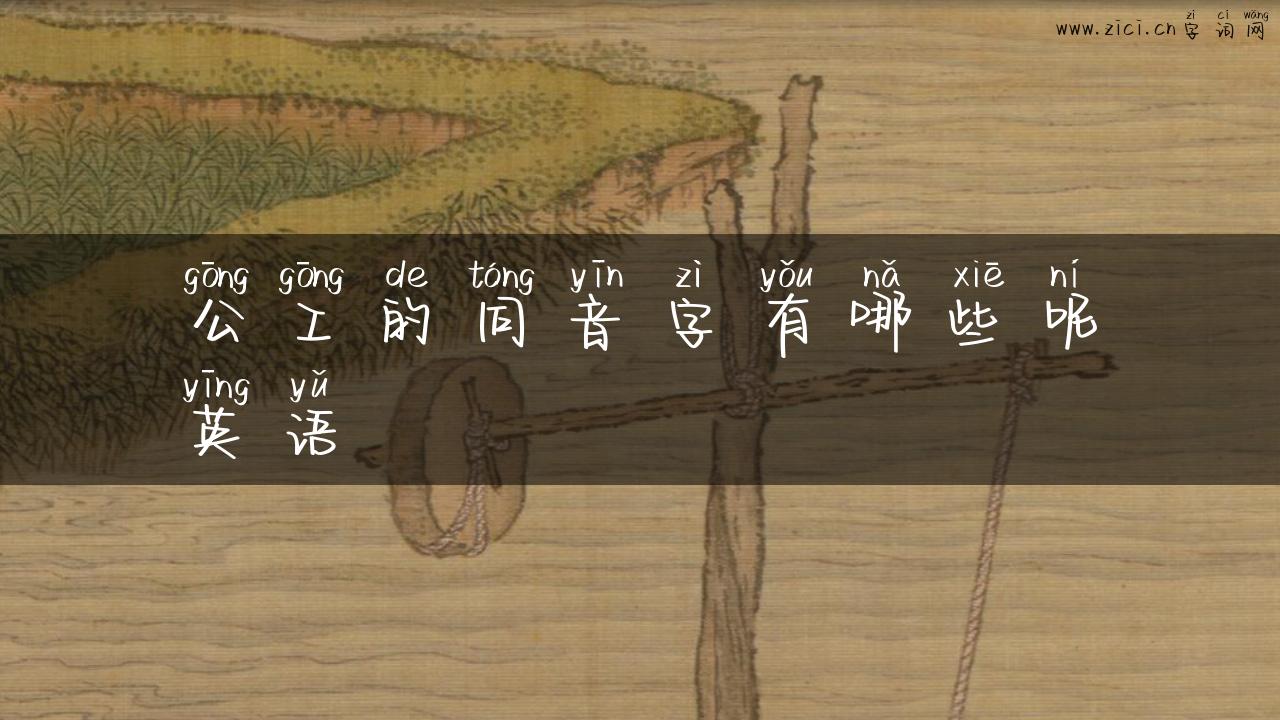 zì cí wǎng
www.zici.cn 字词网
gōng gōng de tóng yīn zì yǒu nǎ xiē ní
公工的同音字有哪些呢
yīng yǔ
英语